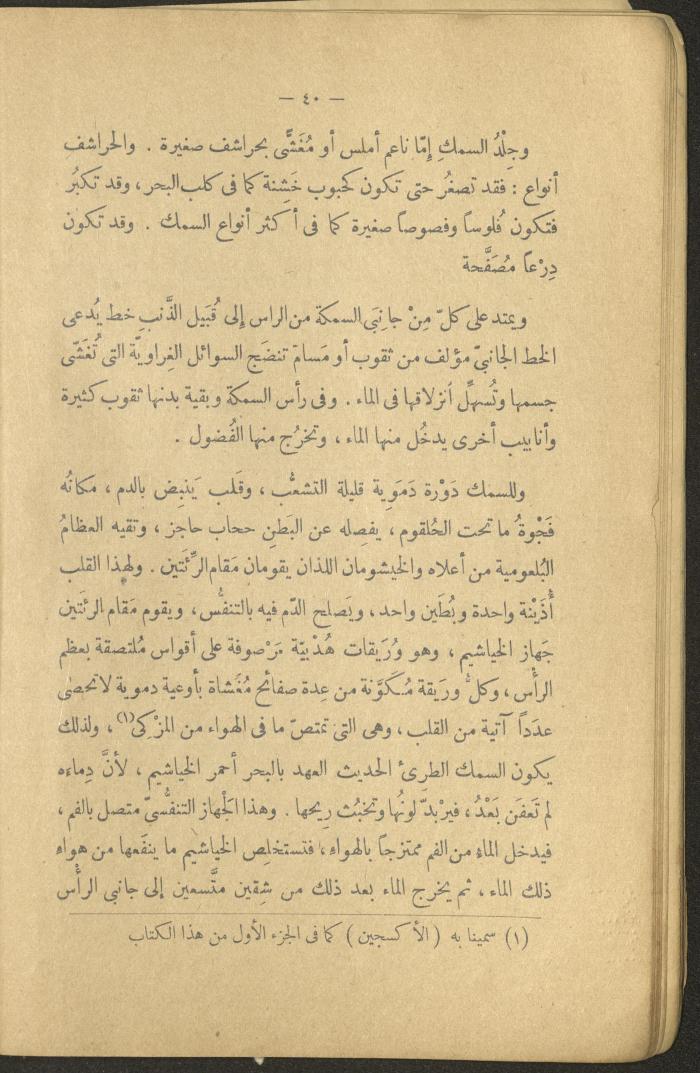 — ٤٠ —
وجِلْدُ السمكِ إِمّا ناعم أملس أو مُغَشًّى بحراشف صغيرة . والحراشف
أنواع : فقد تصغُر حتى تكون كحبوب خَشِنة كما فى كلب البحر ، وقد تكبُر
فتكون فُلوساً وفصوصاً صغيرة كما فى أكثر أنواع السمك . وقد تكون
دِرْعاً مُصَفَّحة
ويمتد على كلّ مِنْ جانِبَى السمكة من الراس إِلى قُبَيل الذَّنبِ خط يُدعى
الخط الجانبىّ مؤلف من ثقوب أو مَسامّ تنضَح السوائل الغِراويّة التى تُغَشّى
جسمها وتُسهِّل اَنزلاقها فى الماء . وفى رأس السمكة وبقية بدنها ثقوب كثيرة
وأنابيب أخرى يدخُل منها الماء ، وتخرُج منها الفُضول .
وللسمك دَوْرة دَمَوِية قليلة التشعُّب ، وقَلب يَنبِض بالدم ، مكانُه
فَجْوةُ ما تحت الحُلقوم ، يفصِله عن البَطن حجاب حاجز ، وتقيه العظامُ
البُلعومية من أعلاه والخيشومان اللذان يقومان مَقام الرِّئتَين . ولهذا القلب
أُذَيْنة واحدة وبُطَين واحد ، ويَصلح الدّم فيه بالتنفُّس ، ويقوم مَقام الرئتَين
جَهاز الخياشيم ، وهو وُرَيقات هُدْبيّة مَرْصوفة على أقواس مُلتصقة بعظم
الرأس ، وكلُّ ورَيقة مُتكَوَّنة من عِدة صفائح مُغَشاة بأوعية دموية لا تحصى
عدَداً آتية من القلب ، وهى التى تمتصّ ما فى الهواء من المزْكى(١) ، ولذلك
يكون السمك الطرىء الحديث العهد بالبحر أحمر الخياشيم ، لأنَّ دِماءه
لم تَعفَن بَعْدُ ، فيرْبدّ لونُها وتخبُث رِيحها . وهذا الجَهاز التنفُّسىّ متصل بالفم ،
فيدخل الماءِ من الفم ممتزجاً بالهواء ، فتستخلِص الخياشيم ما ينفَعها من هواءِ
ذلك الماء ، ثم يخرج الماء بعد ذلك من شِقين متَّسعين إلى جانبى الرأْس
(١) سمينا به (الأكسجين) كما فى الجزء الأول من هذا الكتاب